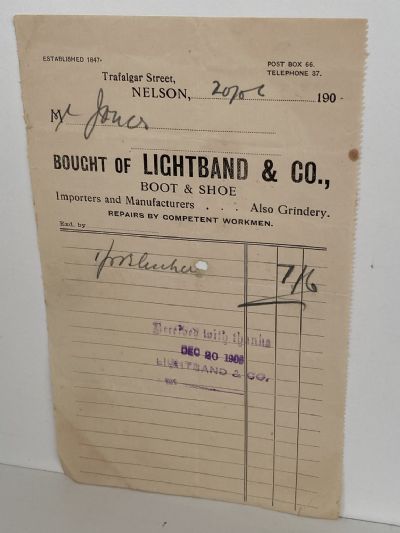 ESTABLISHED 1847.
POST BOX 66.
TELEPHONE 37.
Trafalgar Street,
NELSON, 20/06 190
Mr Jones
BOUGHT OF LIGHTBAND & CO.,
BOOT & SHOE
Importers and Manufacturers . . . Also Grindery.
REPAIRS BY COMPETENT WORKMEN.
Exd. by
1/pr 7/6
Received with thanks
DEC 20 1906
LIGHTBAND & CO.